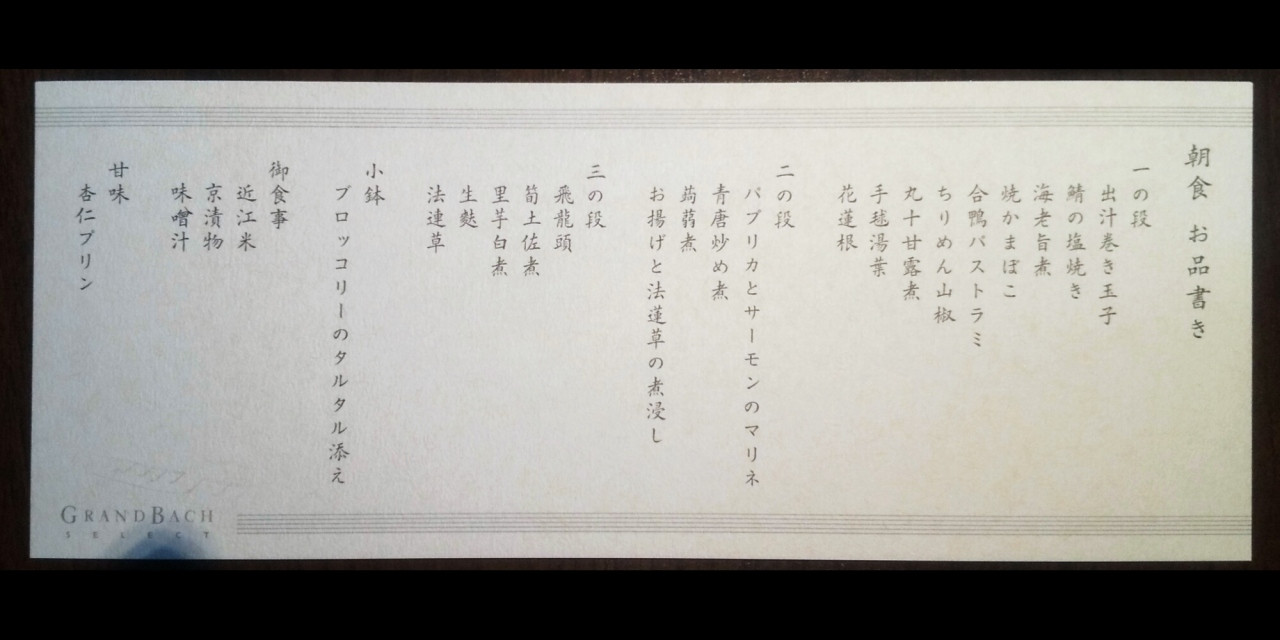 朝食 お品書き
一の段
出汁巻き玉子
鯖の塩焼き
海老旨煮
焼かまぼこ
合鴨パストラミ
ちりめん山椒
丸十甘露煮
手毬湯葉
花蓮根
二の段
パプリカとサーモンのマリネ
青唐炒め煮
蒟蒻煮
お揚げと法蓮草の煮浸し
三の段
飛龍頭
筍土佐煮
里芋白煮
生麩
法連草
小鉢
ブロッコリーのタルタル添え
御食事
近江米
京漬物
味噌汁
甘味
杏仁プリン
GRANDBACH
SELECT